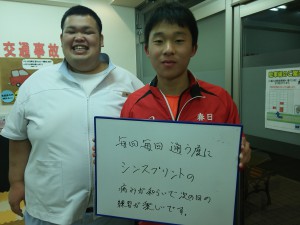 交通事故
春日
毎回毎回 通う度に
シンスプリントの
痛みが和らいで次の日の
練習が楽しいです。